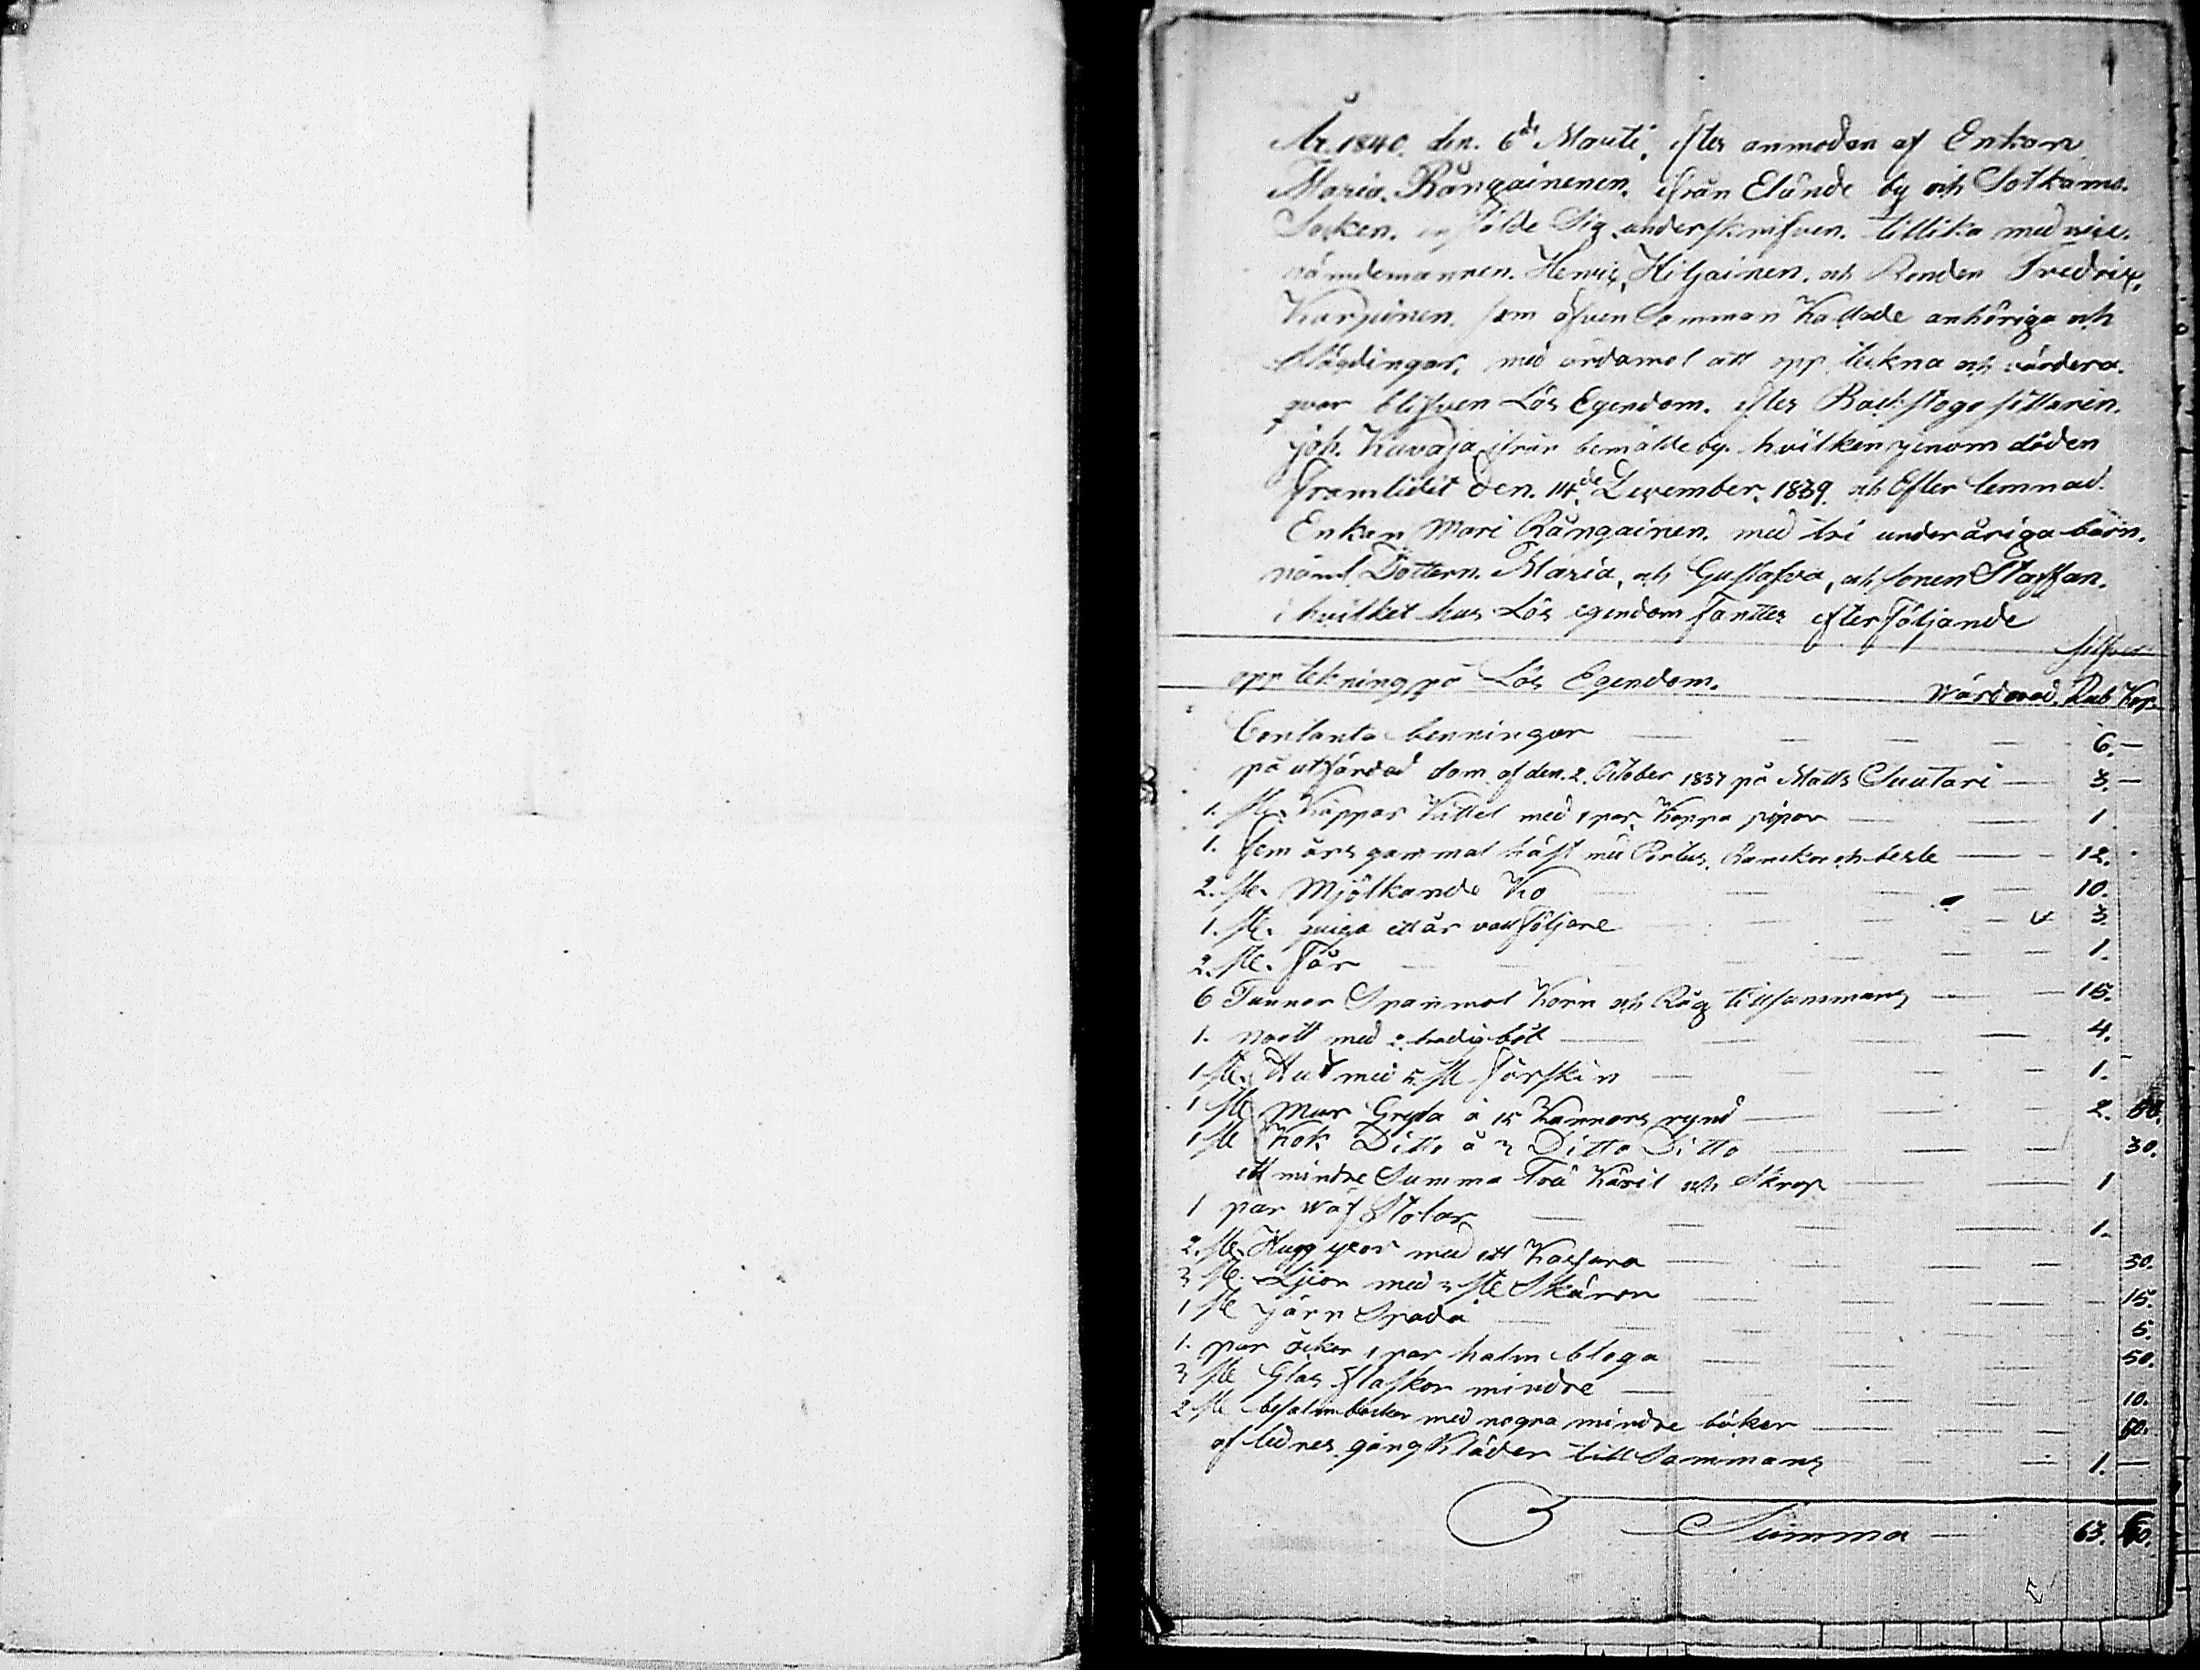 År 1840. den. 6de Marti, efter anmodan af Enkan
Maria. Rångainenen. ifrån Elånde by och Sotkamo.
Socken. instälde Sig underskrifven. tillika med vice.
nämdemannen. Henric, Kiljainen. och Bonden Fredrix.
Karjainen. som äfven Samman Kallade anhöriga och
Slägdingar. med ändamol att opp tekna och värdera.
qvar blifven Lös Egendom. efter Backstogo sittaren.
joh. Kuvaja ifrån bemälde by. hvilken genom döden
framlidit den. 14de December. 1839. och Efter lemnad.
Enkan Mari Rångainen. med tri underåriga barn.
näml Dottern. Maria, och Gustafva, och sonen Staffan.
i hvilket hus Lös egendom fantes efter följande
silfver
opp tekning på Lös Egendom. Wärderad. Rub Kop.
Contanta penningar 6. —
på utfärdad dom af den. 2. October 1837 på Matts Suutari 3. —
1. st. Koppar Kittel med 1 par Koppa pipor 1
1. fem års gammal häst med Rankor och besle 12.
2. st. Mjölkande Ko 10.
1. st. quiga ett år vall följare 3.
2. st. Får 1.
6 Tunnor Spanmol Korn och Råg tillsammans 15.
1. nott med 2. bot 4.
1 st. Hud med 5. st fårskin 1.
1 st Mur Gryta à 15 Kannors rymd 2.
1 st Kok Ditto à 3 Ditto Ditto 30.
ett mindre Summa Trä Käril och Skrap 1
1 par wäf Stolar 1.
2. st. Hugg yxor med ett 30.
3 st. Ljior med 3 st Skäror 15.
1 st järn Spada 5.
1. par öcker 1 par halm bloga 50.
3 st Glas flaskor mindre 10.
2 st med nogra mindre böker 50.
aflidnes gång Kläder till Sammans 1. —
Summa 63.